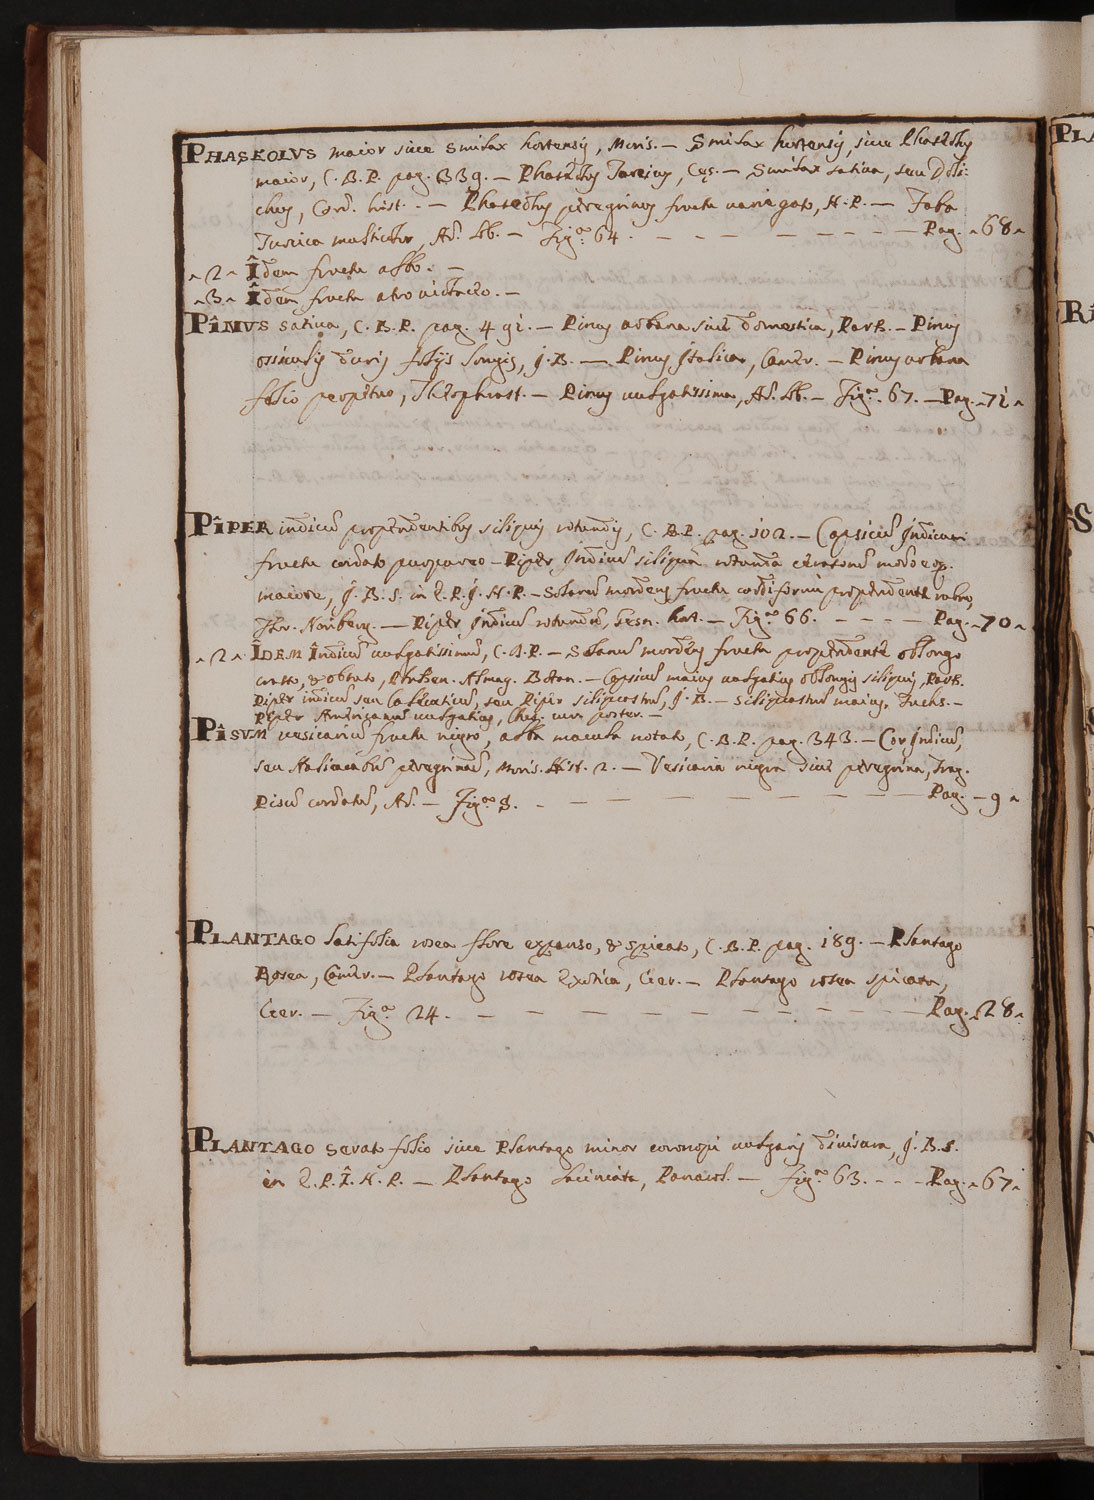 PHASEOLVS maior siue Smilax hortensis, Moris. — Smilax hortensis, siue Phaseolus
maior, C.B.P. pag. 339. — Phaseolus Turcicus, Cęs. — Smilax satiua, seu Doli:
chus, Cord. hist. — Phaseolus peregrinus fructu uariegato, H.P. — Faba
Turcica Ad. Lb. — Fig.ª 64. — Pag. 68
2 Îdem fructu albo. —
3 Îdem fructu atro uiolaceo. —
PÎNVS satiua, C.B.P. pag. 491. — Pinus urbana siue domestica, Park. — Pinus
ossiculis duris folijs longis, J.B. — Pinus Jtalica, Camer. — Pinus urbana
folio Theophrast. — Pinus uulgatissima, Ad. Lb. — Fig.ª 67. — Pag. 71
PÎPER indicũ propendentibus siliquis rotundis, C.B.P. pag. 102. — Capsicũ Jndicum
fructu cordato purpureo — Piper Jndicũ siliquâ rotunda
maiore, J.B.S. in E.P.J.H.P. — Solanũ mordens fructu cordiformi propendente rubro,
Hor. — Piper Jndicũ rotundũ, Gesn. hort. — Fig.ª 66. — Pag. 70
2 ÎDEM Îndicũ uulgatissimũ, C.B.P. — Solanũ mordens fructu propendente oblongo
Almag. Botan. — Capsicũ maius uulgatius oblongis siliquis, Park.
Piper indicũ seu Calecuticũ, seu Piper siliquastrũ, J.B. — Siliquastrũ maius, Fuchs. —
Piper Americanũ uulgatius, Clus. cur. poster. —
PÎSVM uesicariũ fructu nigro, alba macula notato, C.B.P. pag. 343. — Cor Jndicũ,
seu Halicacabũ peregrinũ, Moris. Hist. 2. — Vesicaria nigra siue peregrina, Trag.
Pisũ cordatũ, Ad. — Fig.ª 8. — Pag. 9
PLANTAGO latifolia rosea flore expanso, & spicato, C.B.P. pag. 189. — Plantago
Rosea, Camer. — Plantago rosea exotica, Ger. — Plantago rosea spicata,
Ger. — Fig.ª 24. — Pag. 28
PLANTAGO serato folio siue Plantago minor coronopi uulgaris diuisura, J.B.S.
in E.P.Î.H.P. — Plantago laciniata, Panarol. — Fig.ª 63. — Pag. 67
PLA
RI